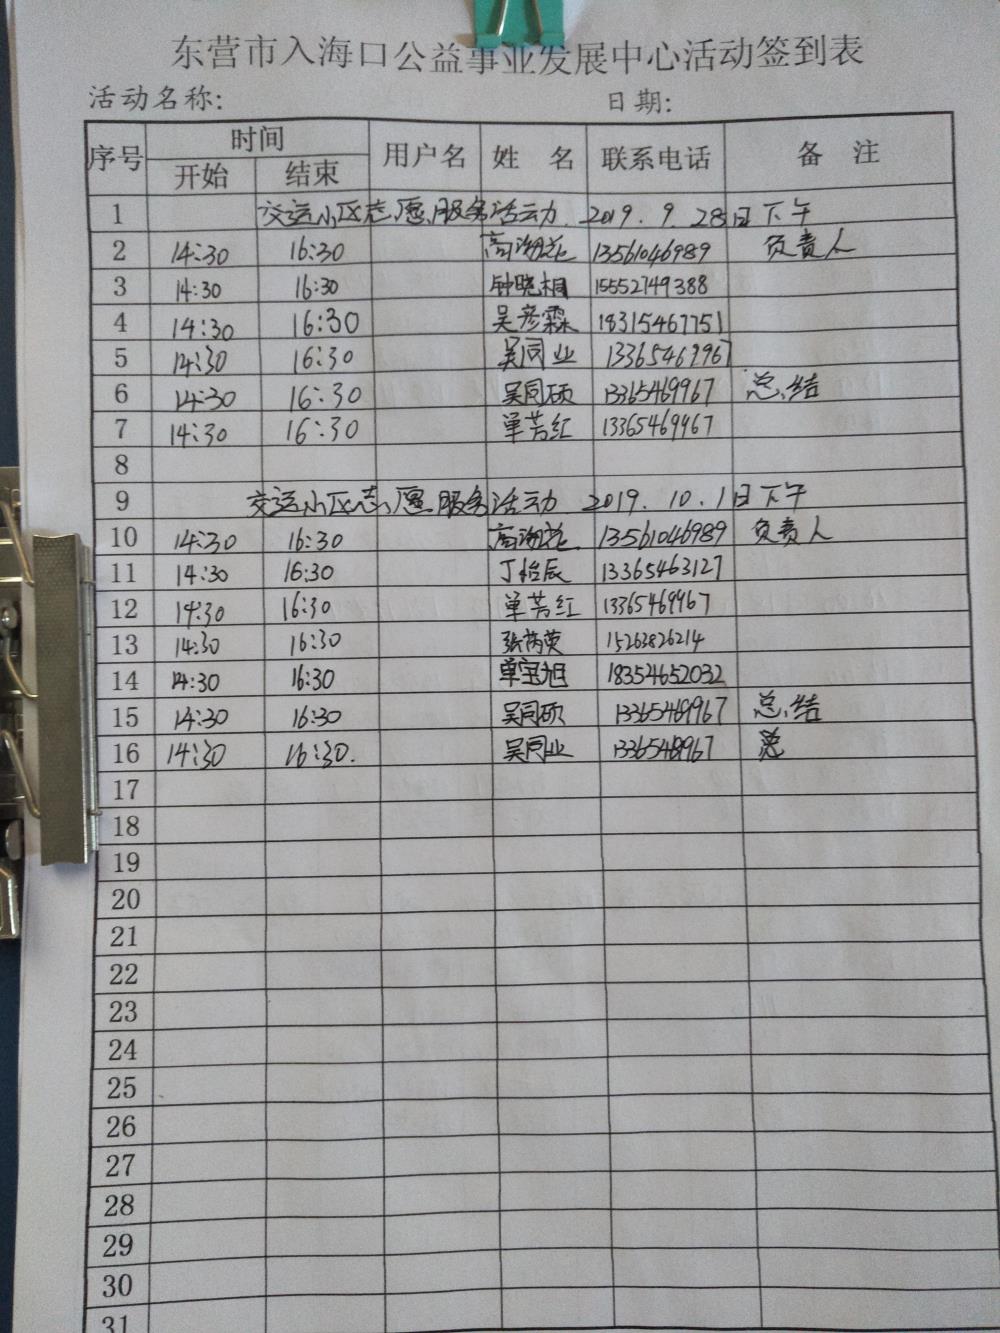 东营市入海口公益事业发展中心活动签到表
活动名称: 日期:
序号 时间 用户名 姓 名 联系电话 备 注
开始 结束
1 交运小区志愿服务活动 2019.9.28日下午
2 14:30 16:30 13561046989 负责人
3 14:30 16:30 钟晓桐 15552749388
4 14:30 16:30 吴彦霖 18315467751
5 14:30 16:30 吴同业 13365469967
6 14:30 16:30 吴同硕 13365469967 总结
7 14:30 16:30 单芳红 13365469967
8
9 交运小区志愿服务活动 2019.10.1日下午
10 14:30 16:30 13561046989 负责人
11 14:30 16:30 丁怡辰 13365463127
12 14:30 16:30 单芳红 13365469967
13 14:30 16:30 15262826214
14 14:30 16:30 单宝旭 18354652032
15 14:30 16:30 吴同硕 13365469967 总结
16 14:30 16:30. 吴同业 13365469967 总
17
18
19
20
21
22
23
24
25
26
27
28
29
30
31